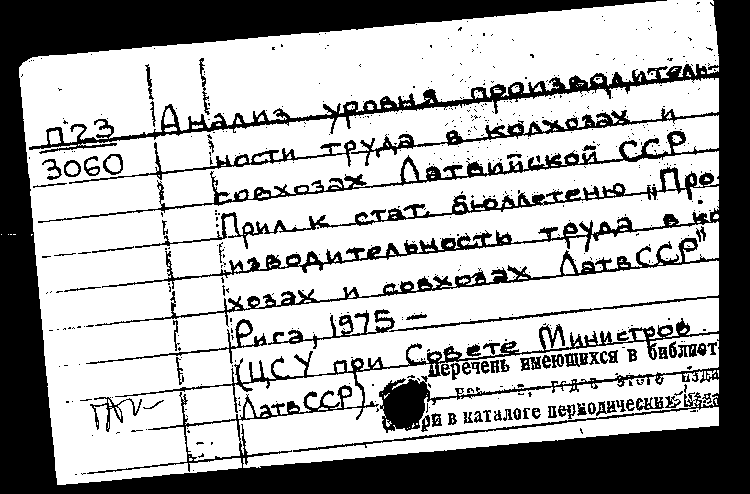 П23
3060
Анализ уровня производитель-
ности труда в колхозах и
совхозах Латвийской ССР.
Прил. к стат. бюллетеню „Про-
изводительность труда в ко
хозах и совхозах ЛатвССР".
Рига, 1975 –
(ЦСУ при Совете Министров
ЛатвССР).
Перечень имеющихся в библиот
годов этого изда
в каталоге периодических изда